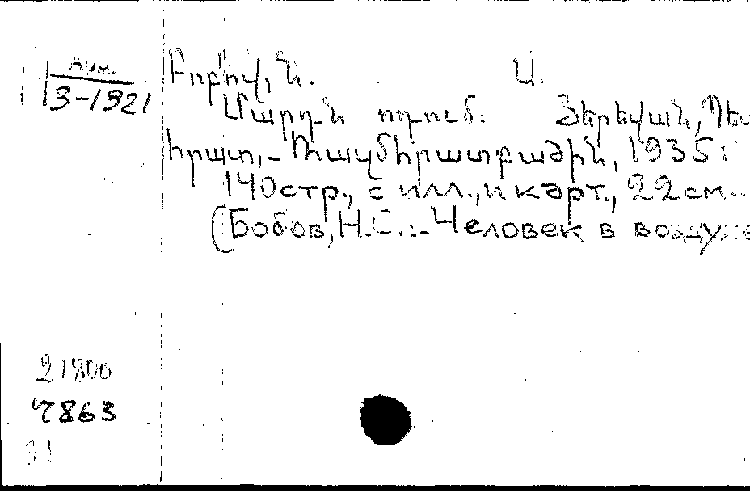 Арм.
3-1921
Բոբով, Ն. Ս.
Մարդն օդում. Յերեվան, Պետ
հրատ., - Ռազմհրատբաժին, 1935:
140стр., с илл., и карт., 22см..
(Бобов, Н.С... Человек в воздухе
21800
7863
31